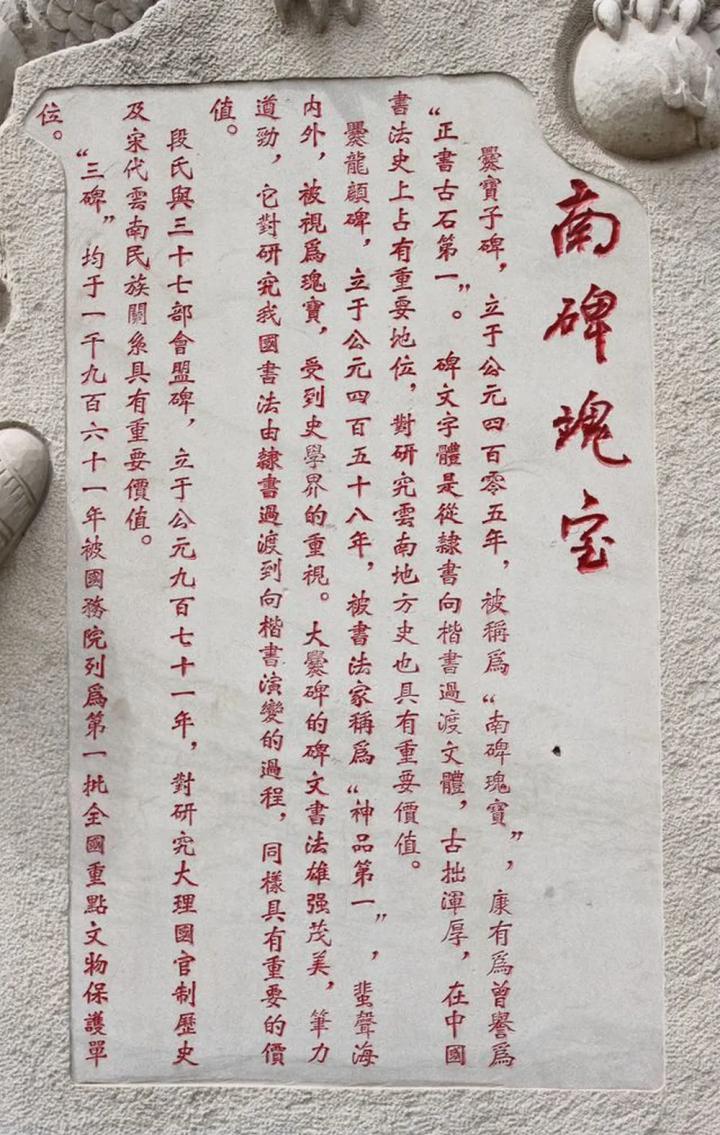 南碑瑰宝
爨寶子碑，立于公元四百零五年，被稱爲“南碑瑰寶”，康有爲曾譽爲
“正書古石第一”。碑文字體是從隸書向楷書過渡文體，古拙渾厚，在中國
書法史上占有重要地位，對研究雲南地方史也具有重要價值。
爨龍顔碑，立于公元四百五十八年，被書法家稱爲“神品第一”，蜚聲海
内外，被視爲瑰寶，受到史學界的重視。大爨碑的碑文書法雄强茂美，筆力
遒勁，它對研究我國書法由隸書過渡到向楷書演變的過程，同樣具有重要的價
值。
段氏與三十七部會盟碑，立于公元九百七十一年，對研究大理國官制歷史
及宋代雲南民族關系具有重要價值。
“三碑”均于一千九百六十一年被國務院列爲第一批全國重點文物保護單
位。